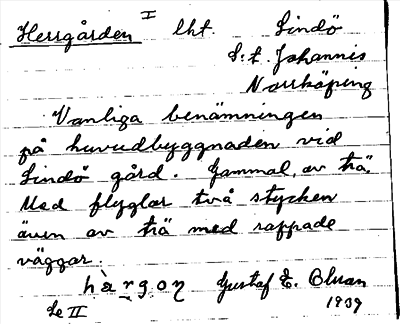 Herrgården I lht. Lindö
S:t Johannis
Norrköping
Vanliga benämningen
på huvudbyggnaden vid
Lindö gård. Gammal, av trä.
Med flyglar två stycken
även av trä med rappade
väggar.
hàrgoɳ Gustaf E. Olsson
Se II 1939